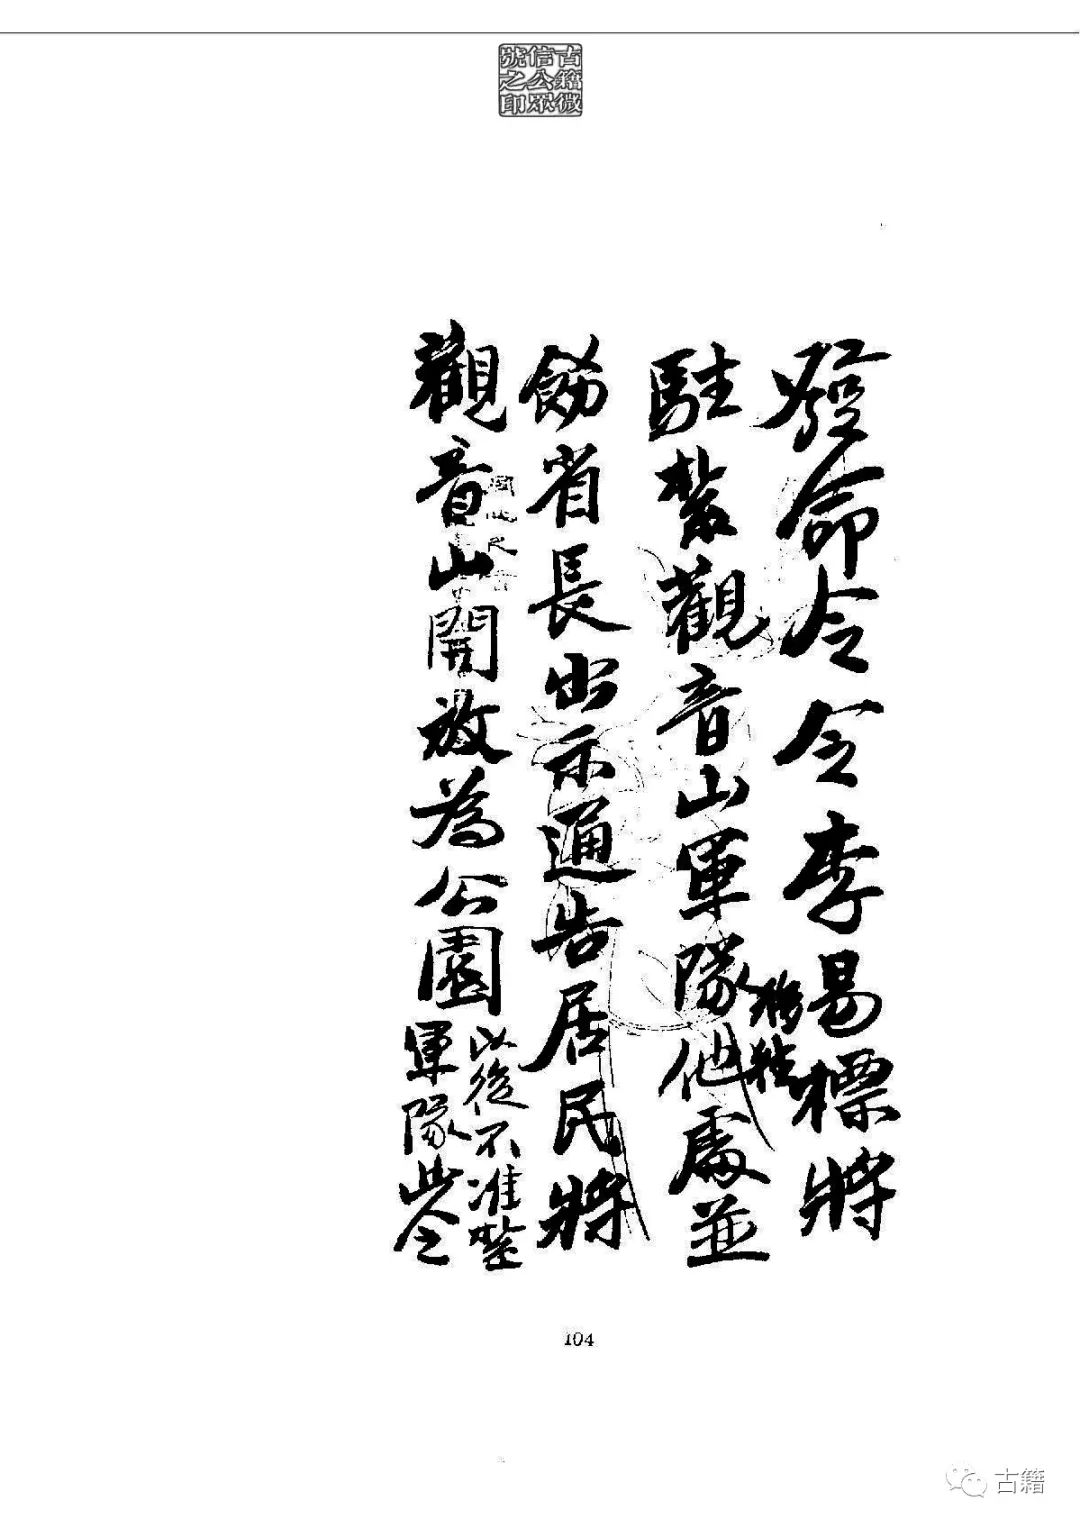 古籍微
信公眾
號之印
發命令令李易標將
駐紮觀音山軍隊移駐他處並
飭省長出示通告居民將
觀音山開放為公園
以後不准紮
軍隊此令
104
古籍